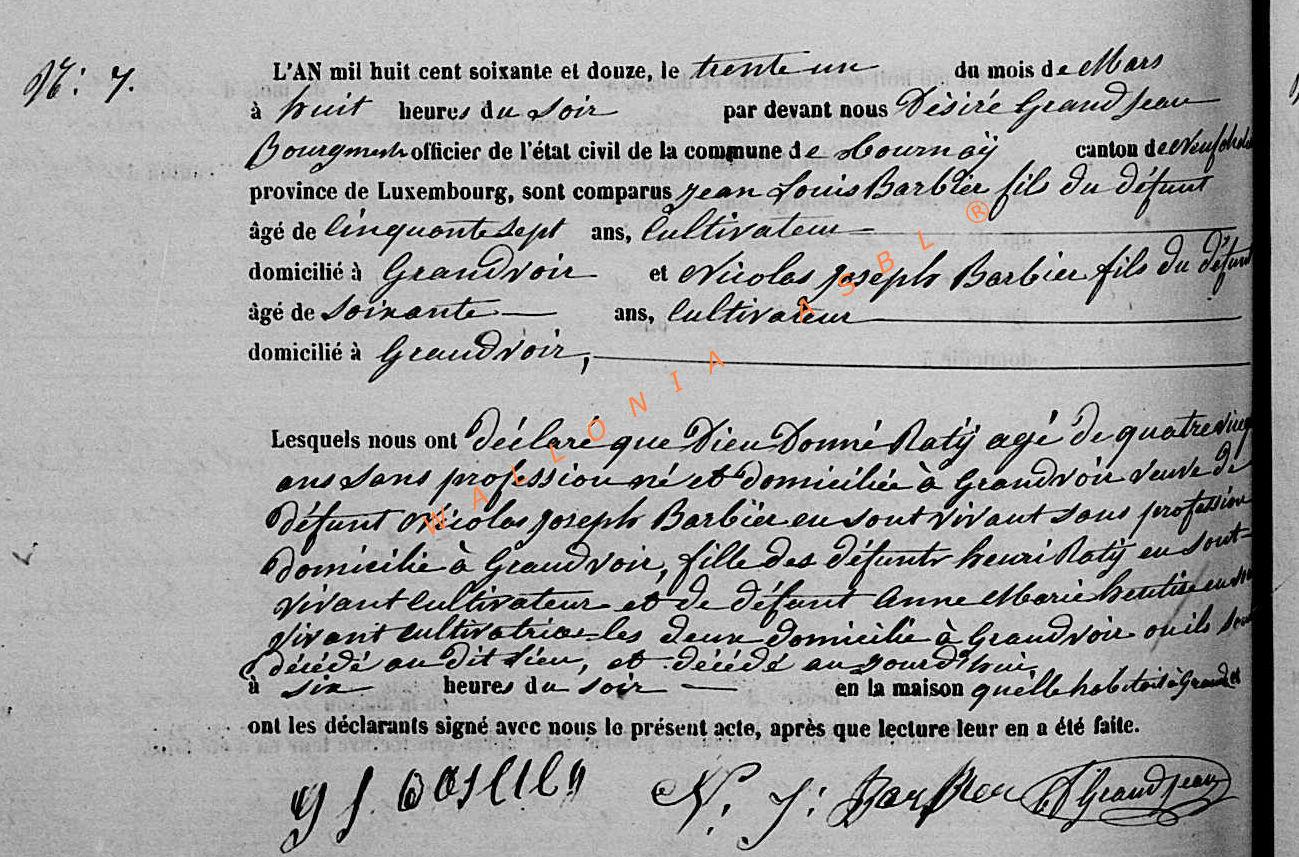 N: 7.
L'AN mil huit cent soixante et douze, le trente un du mois de Mars
à huit heures du soir par devant nous Dèsiré Grandjean
Bourgmestr officier de l'état civil de la commune de Tournaÿ canton de Neufchate
province de Luxembourg, sont comparus jean Louis Barbier fils du défunt
âgé de Cinquante sept ans, Cultivateur
domicilié à Grandvoir et Nicolas joseph Barbier fils du défunt
âgé de Soixante ans, Cultivateur
domicilié à Grandvoir,
Lesquels nous ont déclaré que Dieu Donné Ratÿ agé de quatre vingt
ans sans profession né et domiciliée à Grandvoir veuve de
défunt Nicolas joseph Barbier en sont vivant sans profession
domicilié à Grandvoir, fille des défunts henri Ratÿ en sont-
vivant Cultivateur et de défunt Anne Marie en son
vivant Cultivatrice les deux domicilié à Grandvoir ou ils sont
décédé au dit Lieu, et décédé aujourd'hui
à Six heures du soir en la maison quelle habitait à Grand et
ont les déclarants signé avec nous le présent acte, après que lecture leur en a été faite.
N. J: Barbier D Grandjean
WALLONIA ASBL ®